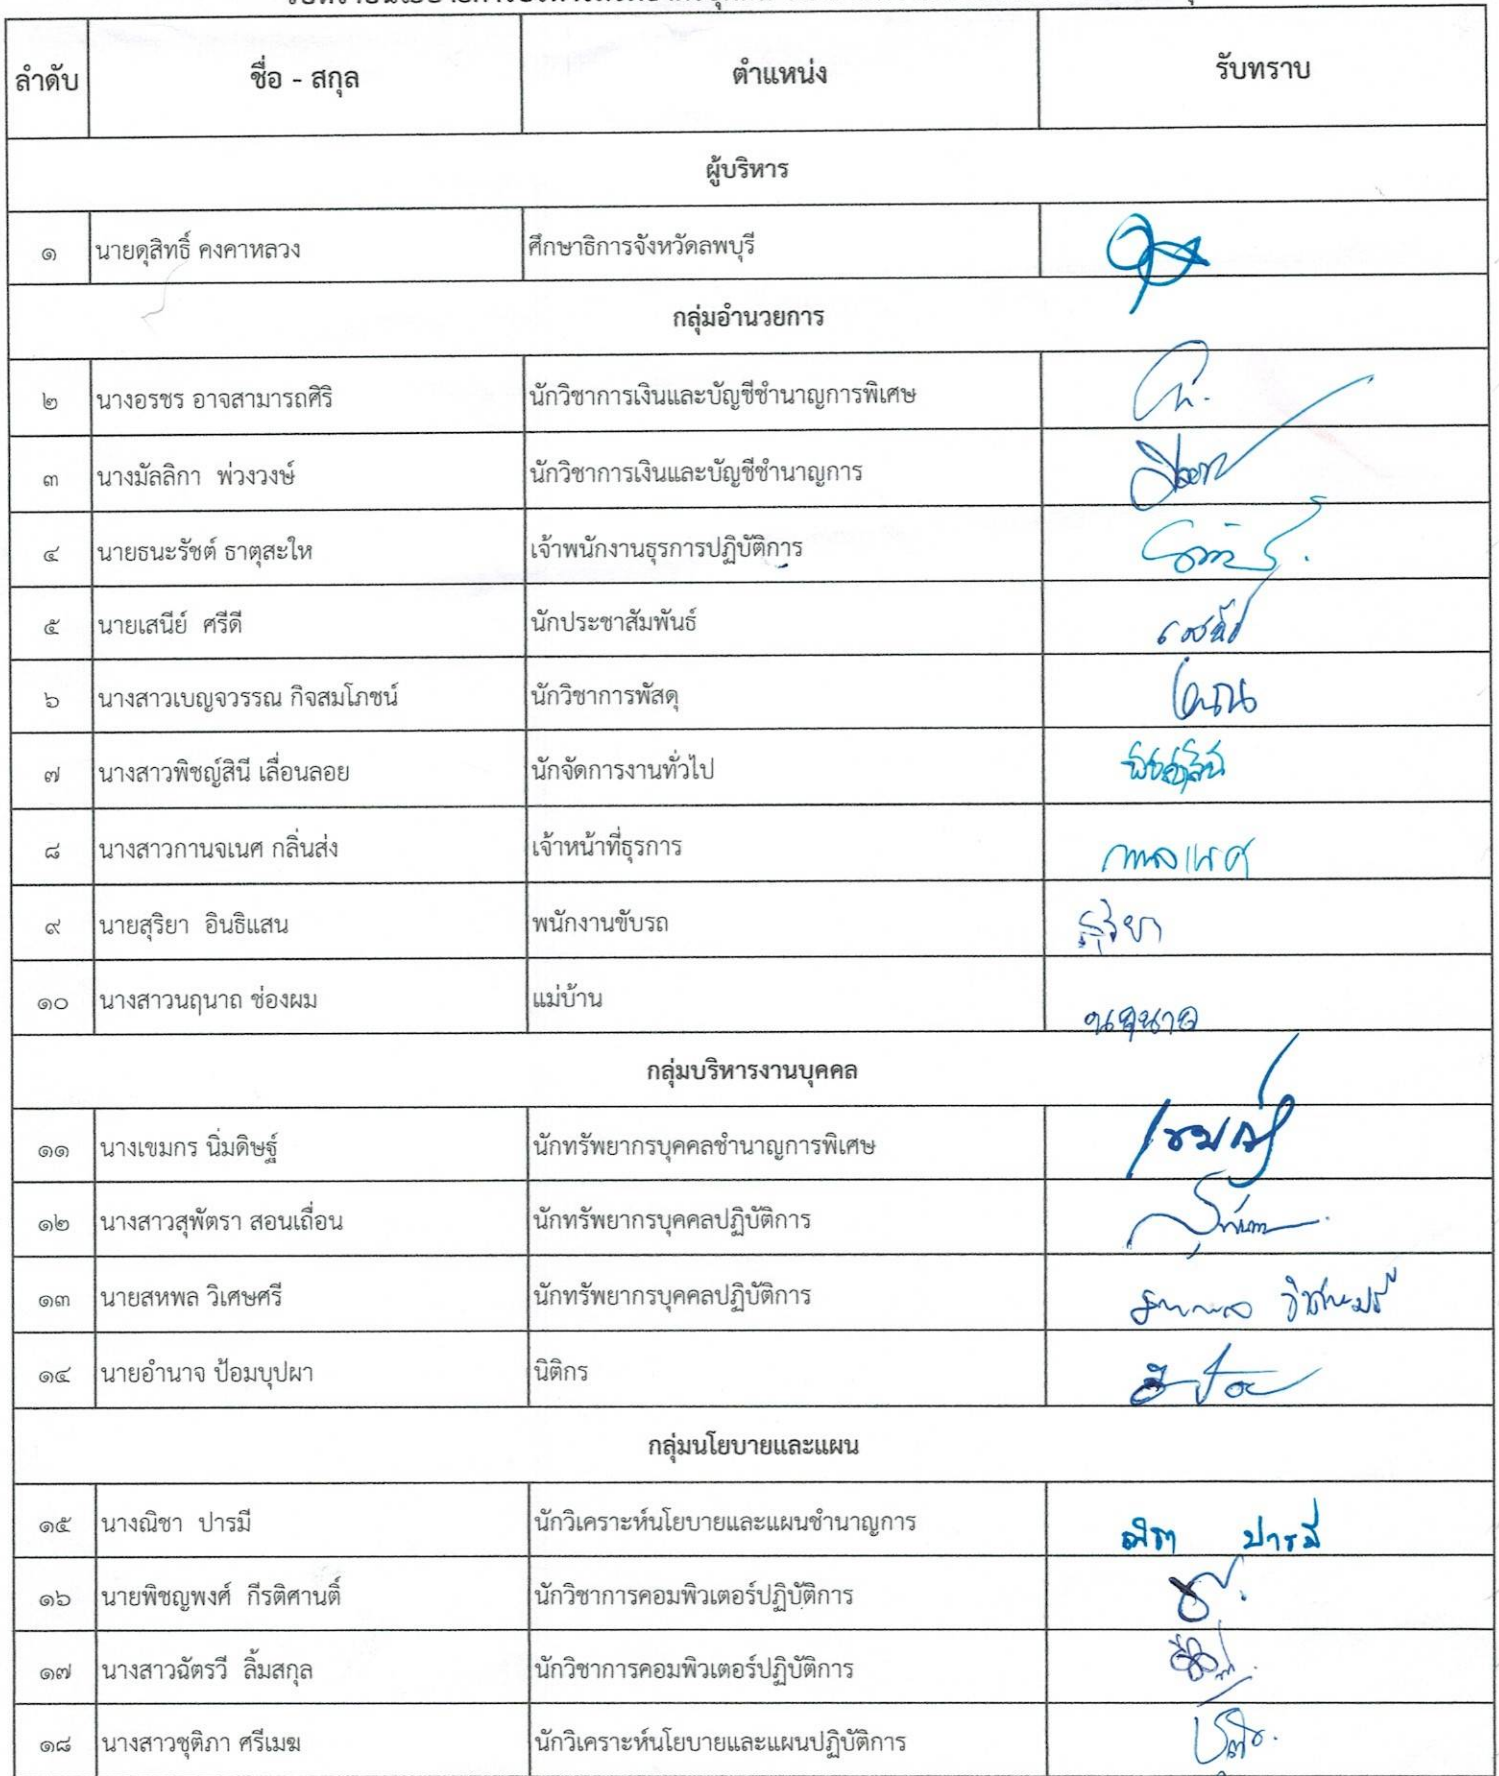 ลำดับ ชื่อ - สกุล ตำแหน่ง รับทราบ
ผู้บริหาร
๑ นายดุสิทธิ์ คงคาหลวง ศึกษาธิการจังหวัดลพบุรี
กลุ่มอำนวยการ
๒ นางอรชร อาจสามารถศิริ นักวิชาการเงินและบัญชีชำนาญการพิเศษ
๓ นางมัลลิกา พ่วงวงษ์ นักวิชาการเงินและบัญชีชำนาญการ
๔ นายธนะรัชต์ ธาตุสะให เจ้าพนักงานธุรการปฏิบัติการ
๕ นายเสนีย์ ศรีดี นักประชาสัมพันธ์ เสนีย์
๖ นางสาวเบญจวรรณ กิจสมโภชน์ นักวิชาการพัสดุ
๗ นางสาวพิชญ์สินี เลื่อนลอย นักจัดการงานทั่วไป พิชญ์สินี
๘ นางสาวกานจเนศ กลิ่นส่ง เจ้าหน้าที่ธุรการ กานจเนศ
๙ นายสุริยา อินธิแสน พนักงานขับรถ สุริยา
๑๐ นางสาวนฤนาถ ช่องผม แม่บ้าน นฤนาถ
กลุ่มบริหารงานบุคคล
๑๑ นางเขมกร นิ่มดิษฐ์ นักทรัพยากรบุคคลชำนาญการพิเศษ
๑๒ นางสาวสุพัตรา สอนเถื่อน นักทรัพยากรบุคคลปฏิบัติการ
๑๓ นายสหพล วิเศษศรี นักทรัพยากรบุคคลปฏิบัติการ สหพล วิเศษศรี
๑๔ นายอำนาจ ป้อมบุปผา นิติกร
กลุ่มนโยบายและแผน
๑๕ นางณิชา ปารมี นักวิเคราะห์นโยบายและแผนชำนาญการ ณิชา ปารมี
๑๖ นายพิชญพงศ์ กีรติศานติ์ นักวิชาการคอมพิวเตอร์ปฏิบัติการ
๑๗ นางสาวฉัตรวี ลิ้มสกุล นักวิชาการคอมพิวเตอร์ปฏิบัติการ
๑๘ นางสาวชุติภา ศรีเมฆ นักวิเคราะห์นโยบายและแผนปฏิบัติการ